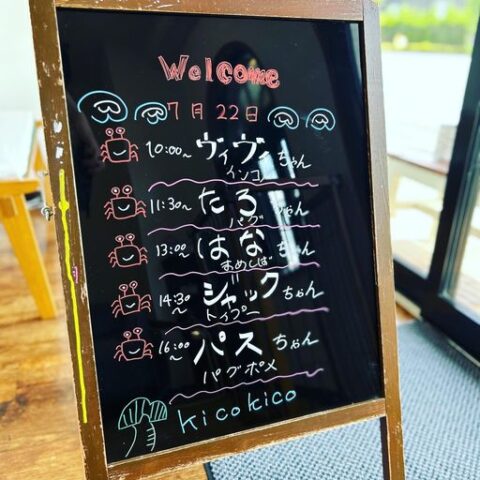 Welcome
7月22日
10:00~ ヴィヴィちゃん
インコ
11:30~ たろちゃん
パグ
13:00~ はなちゃん
まめしば
14:30~ ジャックちゃん
トイプー
16:00~ パスちゃん
パグポメ
kicokico